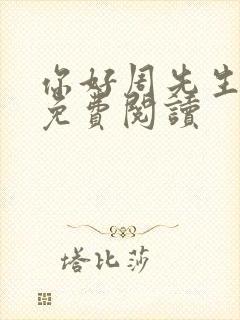 你好周先生
免費閱讀
塔比莎